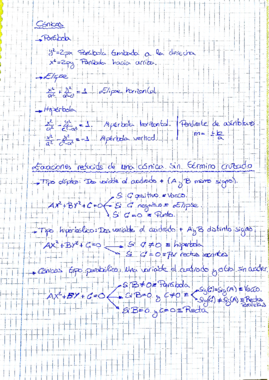 Cónicas
→ Parábola
y²=2px Parábola tumbada a la derecha
x²=2py Parábola hacia arriba.
→ Elipse
= 1 Elipse horizontal
→ Hipérbola
= 1 Hipérbola horizontal. Pendiente de asíntotas
= -1 Hipérbola vertical. m=
Ecuaciones reducidas de una cónica sin término cruzado
→ Tipo elíptico: Dos variable al cuadrado + (A y B mismo signo).
Si G positivo = Vacío.
AX²+BY²+G=0 Si G negativo = Elipse
Si G=0 = Punto.
→ Tipo hiperbólico: Dos variable al cuadrado + A y B distinto signo.
AX²+BY²+G=0 Si G≠0 = hipérbola
Si G=0 = Par rectas secantes
→ Cónicas tipo parabólico: Una variable al cuadrado y otra sin
Si B≠0 = Parábola.
AX²+BY+C=0 Si B=0 y C≠0 = Sg(C)=Sg(A) = Vacío.
Sg(C)≠Sg(A) = Rectas
Si B=0 y C=0 = Recta.